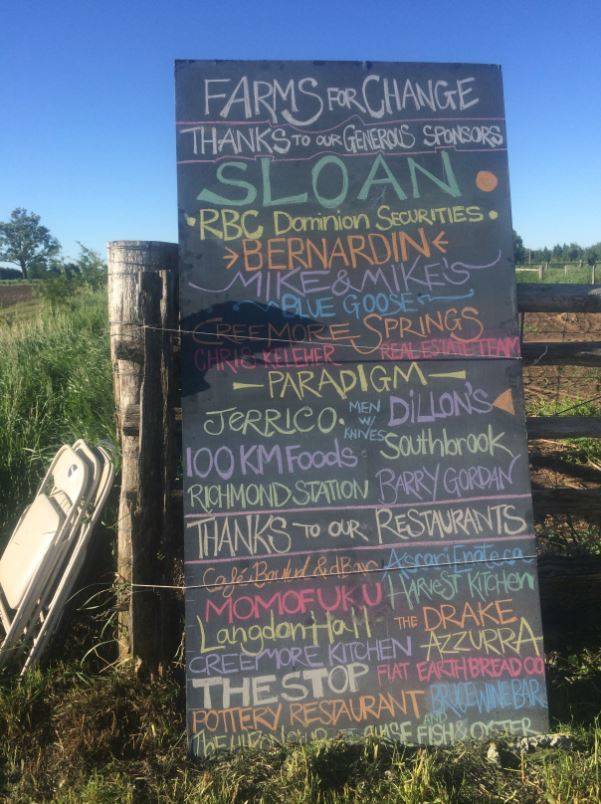 FARMS FOR CHANGE
THANKS TO OUR GENEROUS SPONSORS
SLOAN
RBC Dominion SECURITIES
BERNARDIN
MIKE & MIKE'S
BLUE GOOSE
CREEMORE SPRINGS
CHRIS KELEHER REAL ESTATE TEAM
PARADIGM
JERRICO. MEN W/ KNIVES DILLON'S
100 KM Foods Southbrook
RICHMOND STATION BARRY GORDAN
THANKS TO OUR RESTAURANTS
Café Bar Ascari Enoteca
MOMOFUKU HARVEST KITCHEN
Langdon Hall THE DRAKE
CREEMORE KITCHEN AZZURRA
THE STOP FLAT EARTH BREAD CO
POTTERY RESTAURANT BRUCE WINE BAR
THE AND FISH & OYSTER